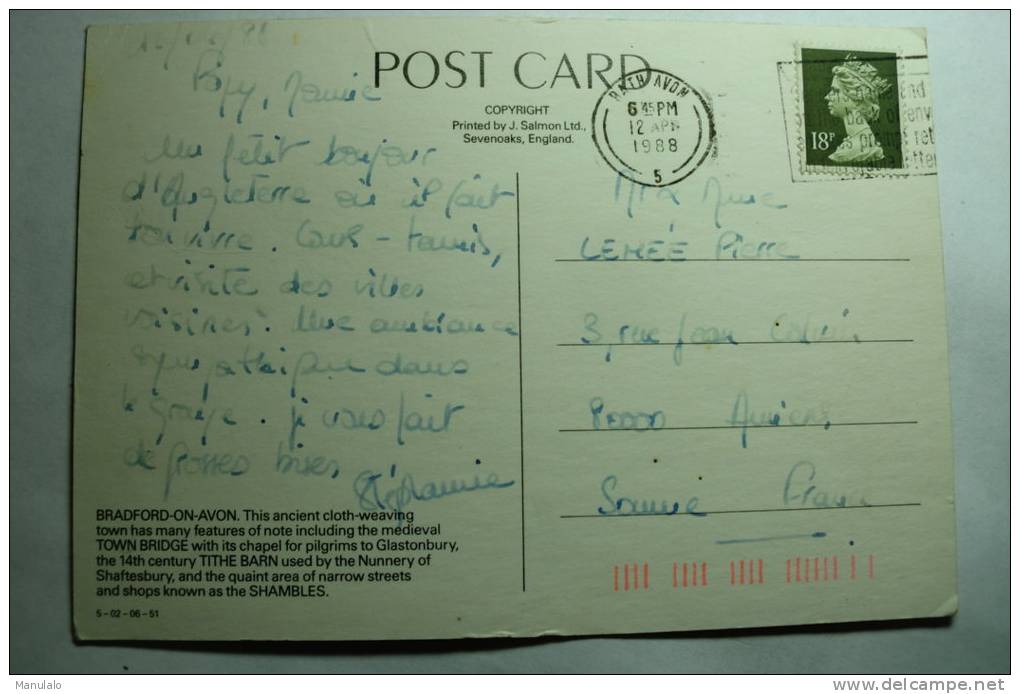 POST CARD
COPYRIGHT
Printed by J. Salmon Ltd.,
Sevenoaks, England.
BATH AVON
6 45 PM
12 APR
1988
5
18P
Papy, Mamie
Un petit bonjour
d'Angleterre où il fait
. Cours - tennis,
et visite des villes
voisines. Une ambiance
sympathique dans
le groupe. je vous fait
de grosses bises
Stéphanie
Mr & Mme
LEMÉE Pierre
3, rue Jean
80000 Amiens
Somme France
BRADFORD-ON-AVON. This ancient cloth-weaving
town has many features of note including the medieval
TOWN BRIDGE with its chapel for pilgrims to Glastonbury,
the 14th century TITHE BARN used by the Nunnery of
Shaftesbury, and the quaint area of narrow streets
and shops known as the SHAMBLES.
5-02-06-51
Manulalo
delcampe.net